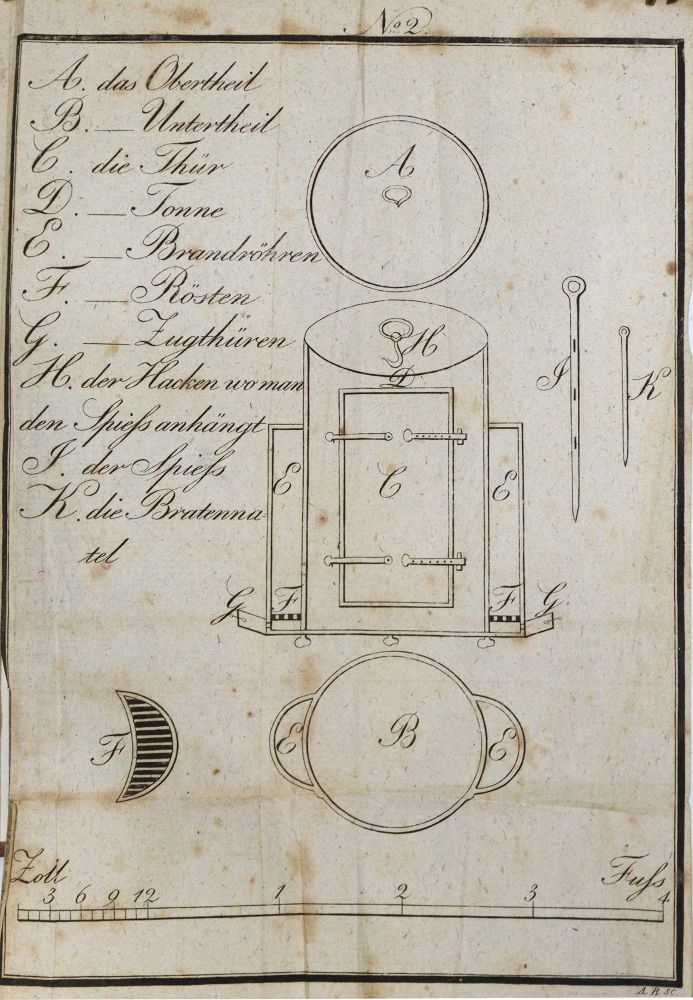 No. 2.
A. das Obertheil
B. — Untertheil
C. die Thür
D. — Tonne
E. — Brandröhren
F. — Rösten
G. — Zugthüren
H. der Hacken wo man
den Spieſs anhängt
I. der Spieſs
K. die Bratenna-
tel
A
H
D
I
K
E
C
E
G
F
F
G
F
E
B
E
Zoll
Fuſs
3 6 9 12 1 2 3 4
A. B. sc.